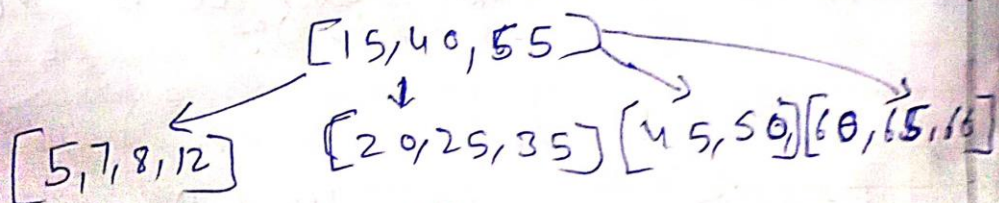 [15, 40, 55]
[5, 7, 8, 12] [20, 25, 35] [45, 50,] [60, 65, 66]